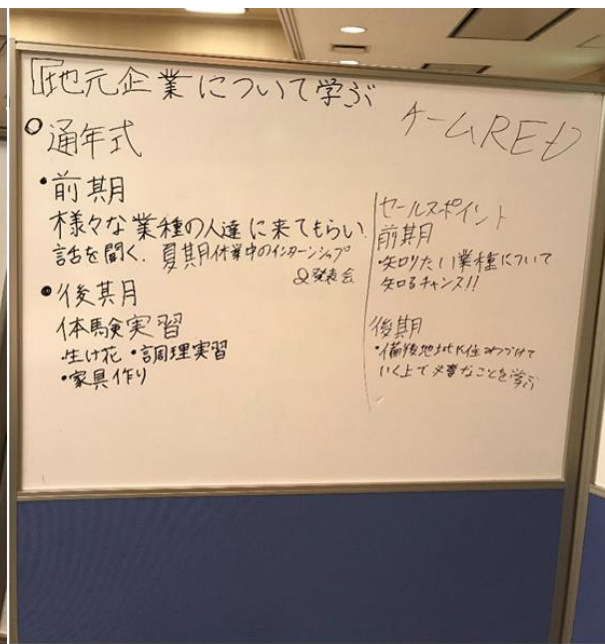 『地元企業について学ぶ
チームRED
通年式
・前期
様々な業種の人達に来てもらい
話を聞く、夏期休業中のインターンシップ
&発表会
・後期
体験実習
・生け花 ・調理実習
・家具作り
セールスポイント
前期
・知りたい業種について
知るチャンス!!
後期
・備後地域に住みつづけて
いく上で必要なことを学ぶ